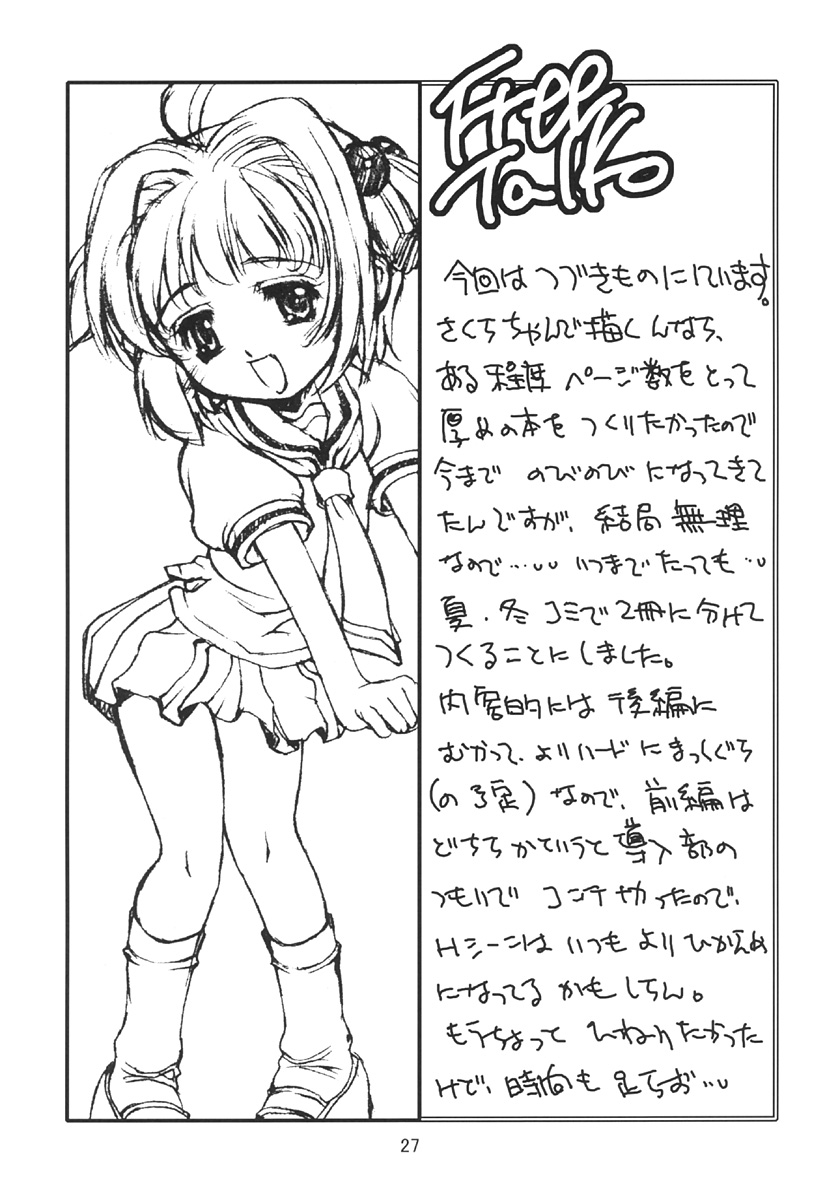 Free
Talk
今回は つづきものにしています。
さくらちゃんで描くんなら、
ある程度 ページ数をとって
厚めの本を つくりたかったので
今まで のびのび になってきて
たんですが、結局 無理
なので…… いつまでたっても…
夏・冬 コミで2冊に分けて
つくることにしました。
内容的には後編に
むかって、よりハードにまっしぐら
(の予定) なので、前編は
どちらかていうと導入部の
つもりで コンテやったので、
Hシーンは いつもよりひかえめ
になってる かもしらん。
もうちょっと ひねりたかった
けど、時間も 足らお…
27